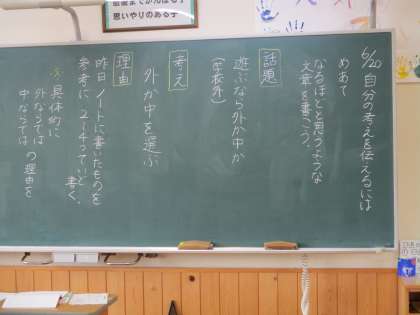 思いやりのある子
6/20 自分の考えを伝えるには
めあて
なるほどと思うような
文章を書こう。
話題
遊ぶなら外か中か
(学校外)
考え
外か中を選ぶ
理由
昨日ノートに書いたものを
参考に、2〜4つていど
書く。
具体的に
外ならでは
中ならでは
の理由を